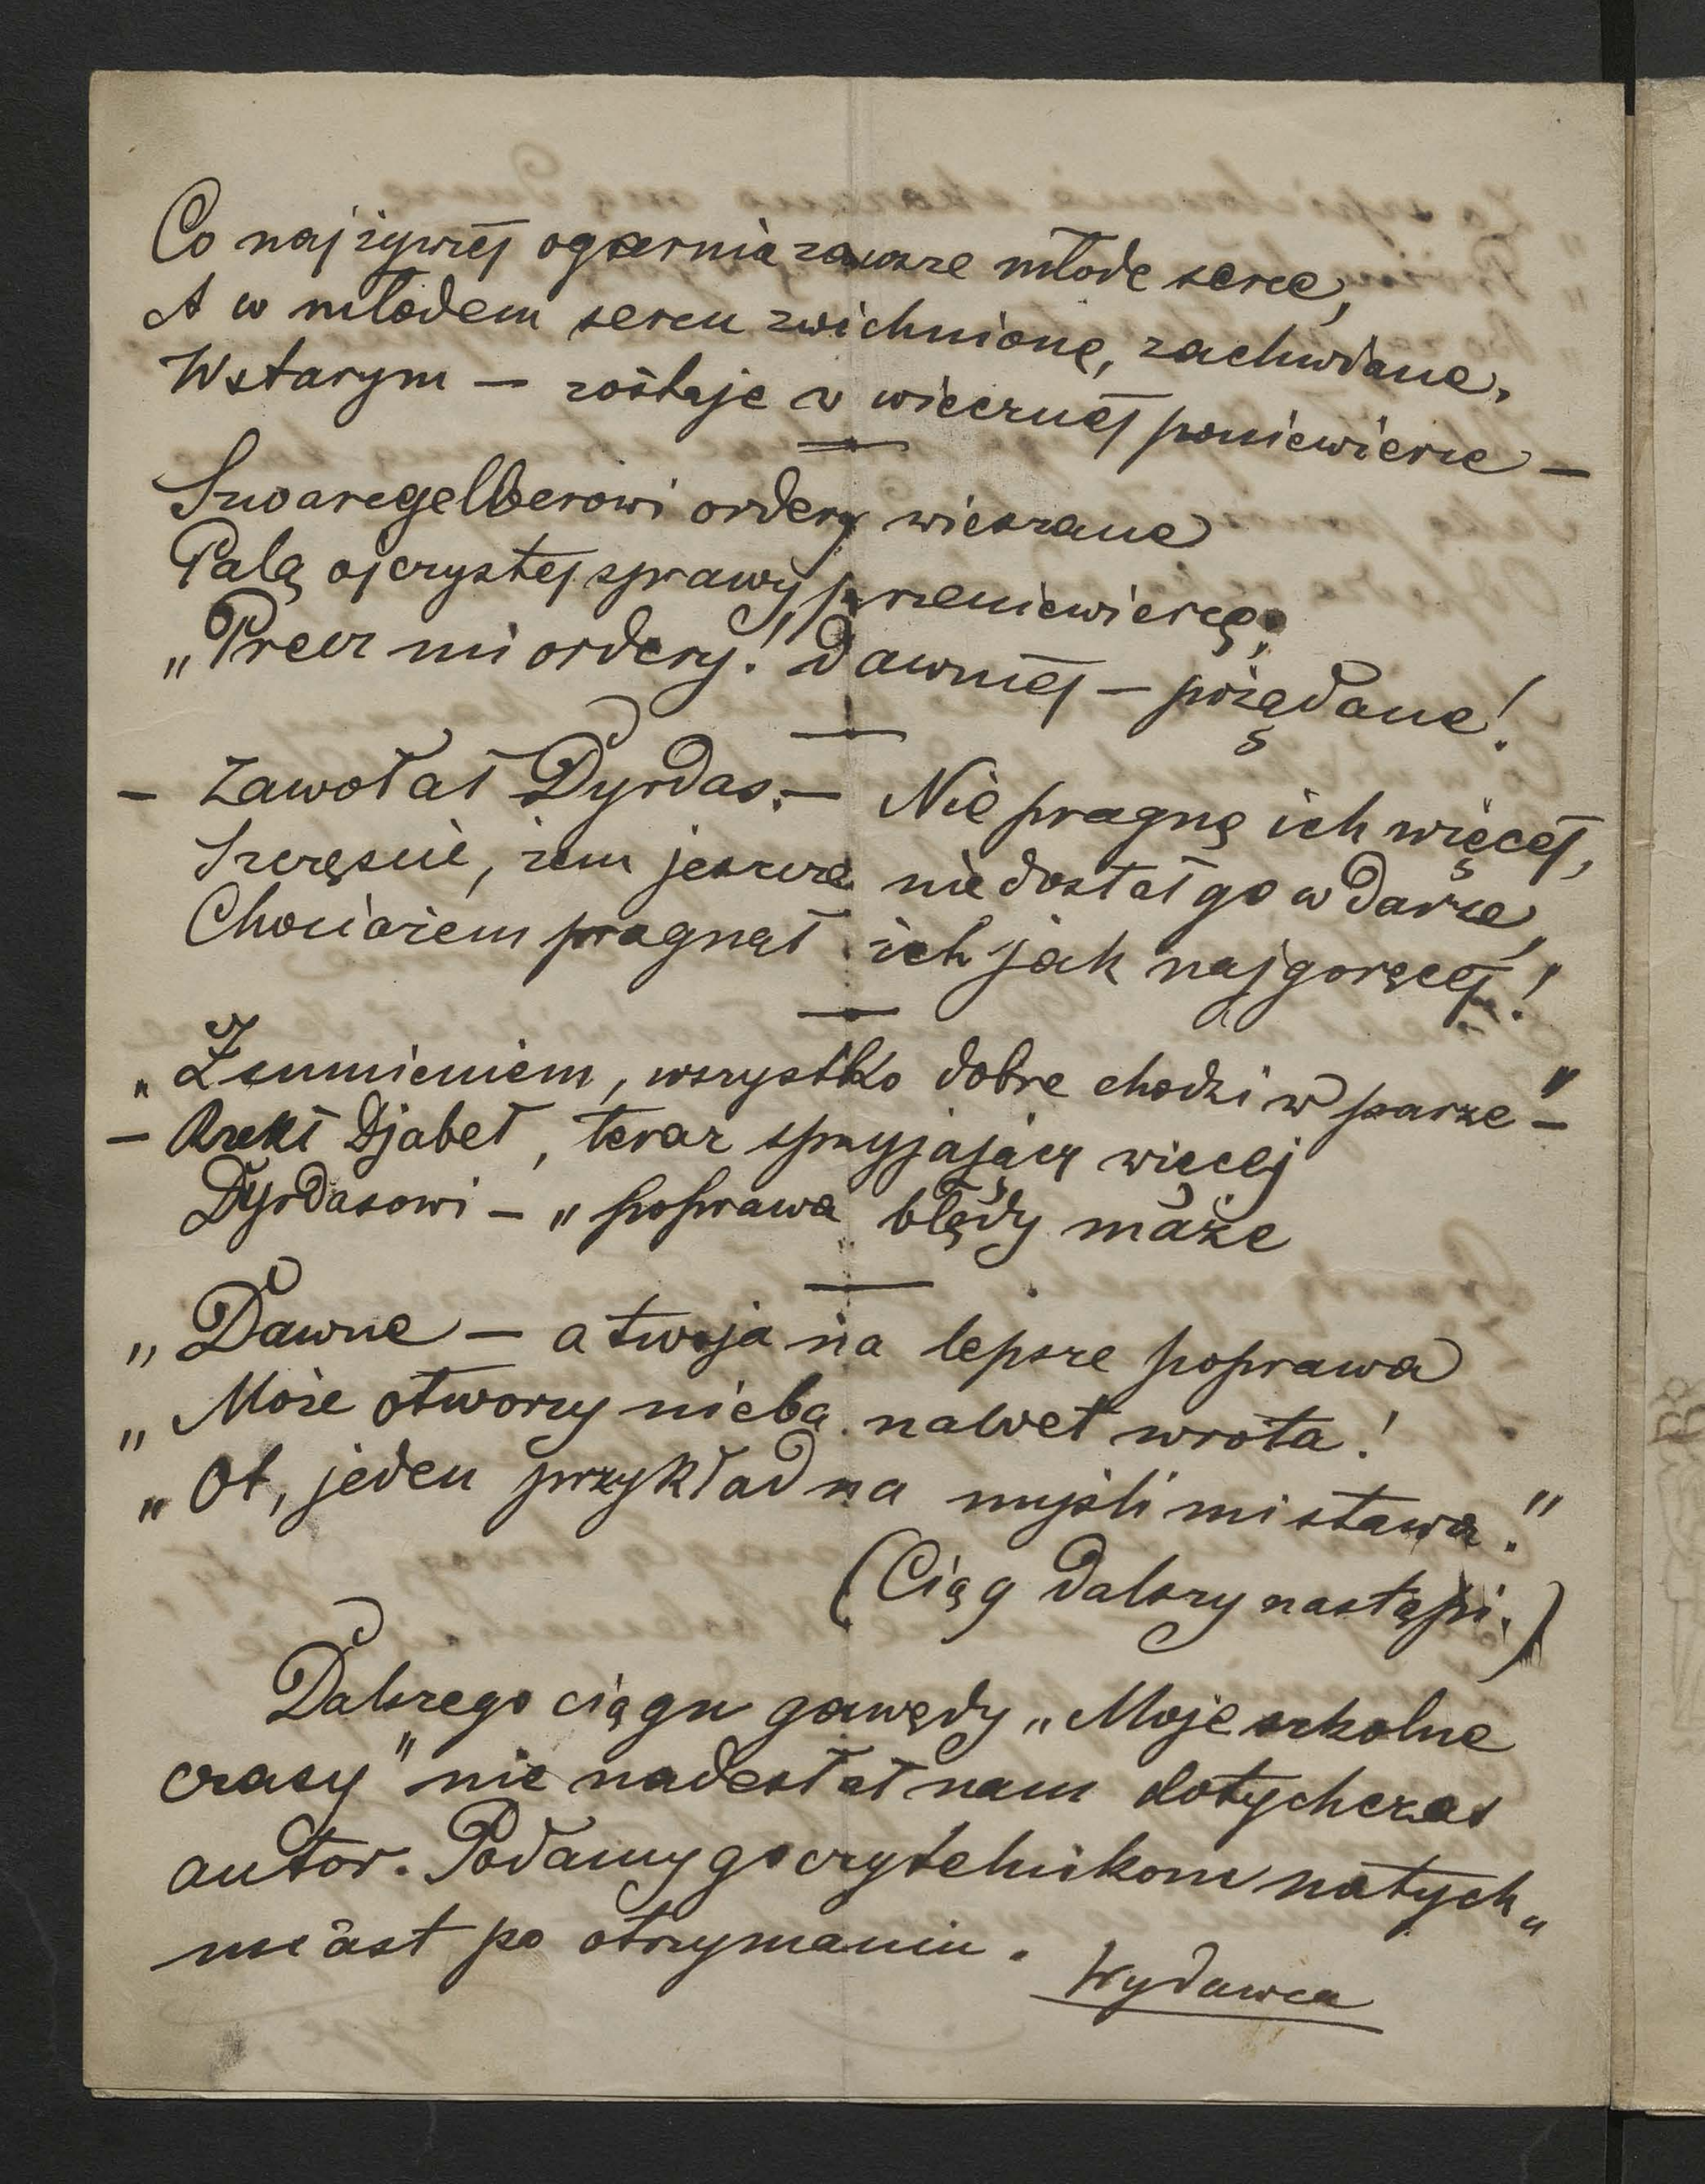 Co najżywiéj ogarnia zawsze młode serce,
A w młodem sercu zwichnione, zachwiane,
W starym — zostaje w wiecznéj poniewierce —
Szwargelberowi ordery wieszane
Palą ojczystej sprawy przeniewiercę;
„Precz mi ordery! dawniéj — pożądane!
— Zawołał Dyrdas. — Nie pragnę ich więcéj,
Szczęście, żem jeszcze nie dostał go w darze,
Chociażem pragnął ich jak najgoręcéj!
„Z sumieniem, wszystko dobre chodzi w parze" —
— Rzekł Djabeł, teraz sprzyjający więcej
Dyrdasowi — „poprawa błędy maże
„Dawne — a twoja na lepsze poprawa
„Może otworzy nieba nawet wrota!
„Ot, jeden przykład na myśli mi stawa."
(Ciąg dalszy nastąpi.)
Dalszego ciągu gawędy „Moje szkolne
czasy" nie nadesłał nam dotychczas
autor. Podamy go czytelnikom natych„
miast po otrzymaniu.
Wydawca